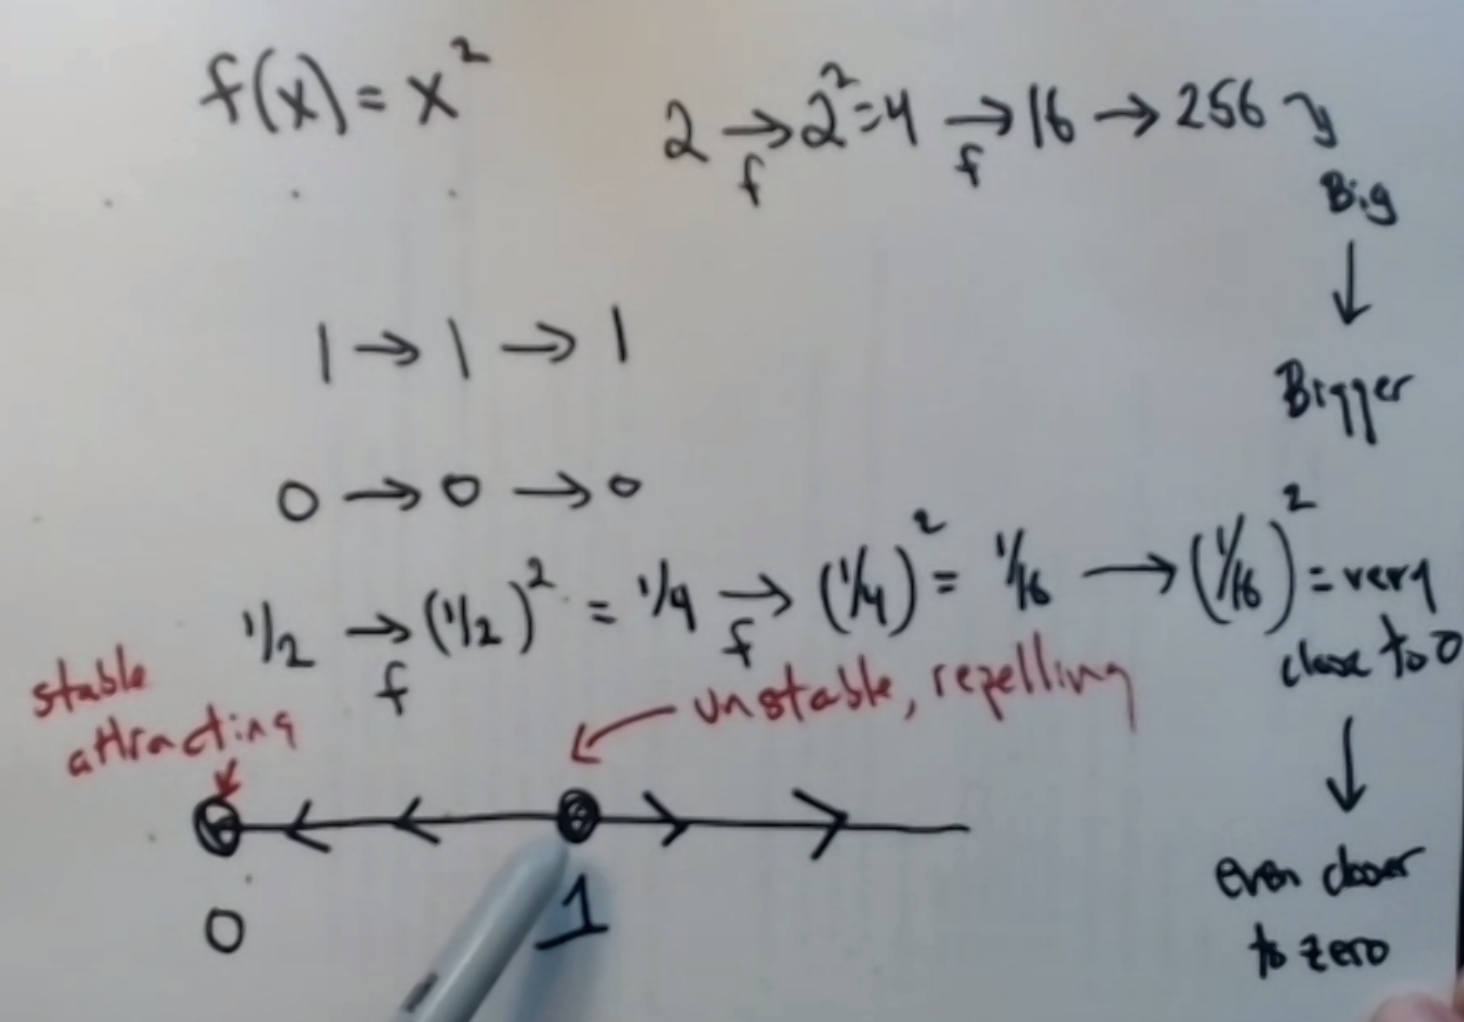 f(x) = x²
2 →f 2² = 4 →f 16 → 256 ↘
Big
↓
Bigger
1 → 1 → 1
0 → 0 → 0
1/2 →f (1/2)² = 1/4 →f (1/4)² = 1/16 → (1/16)² = very
close to 0
↓
even closer
to zero
stable
attracting
unstable, repelling
0
1